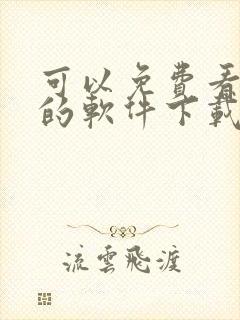 可以免費看
的軟件下載
流雲飛渡